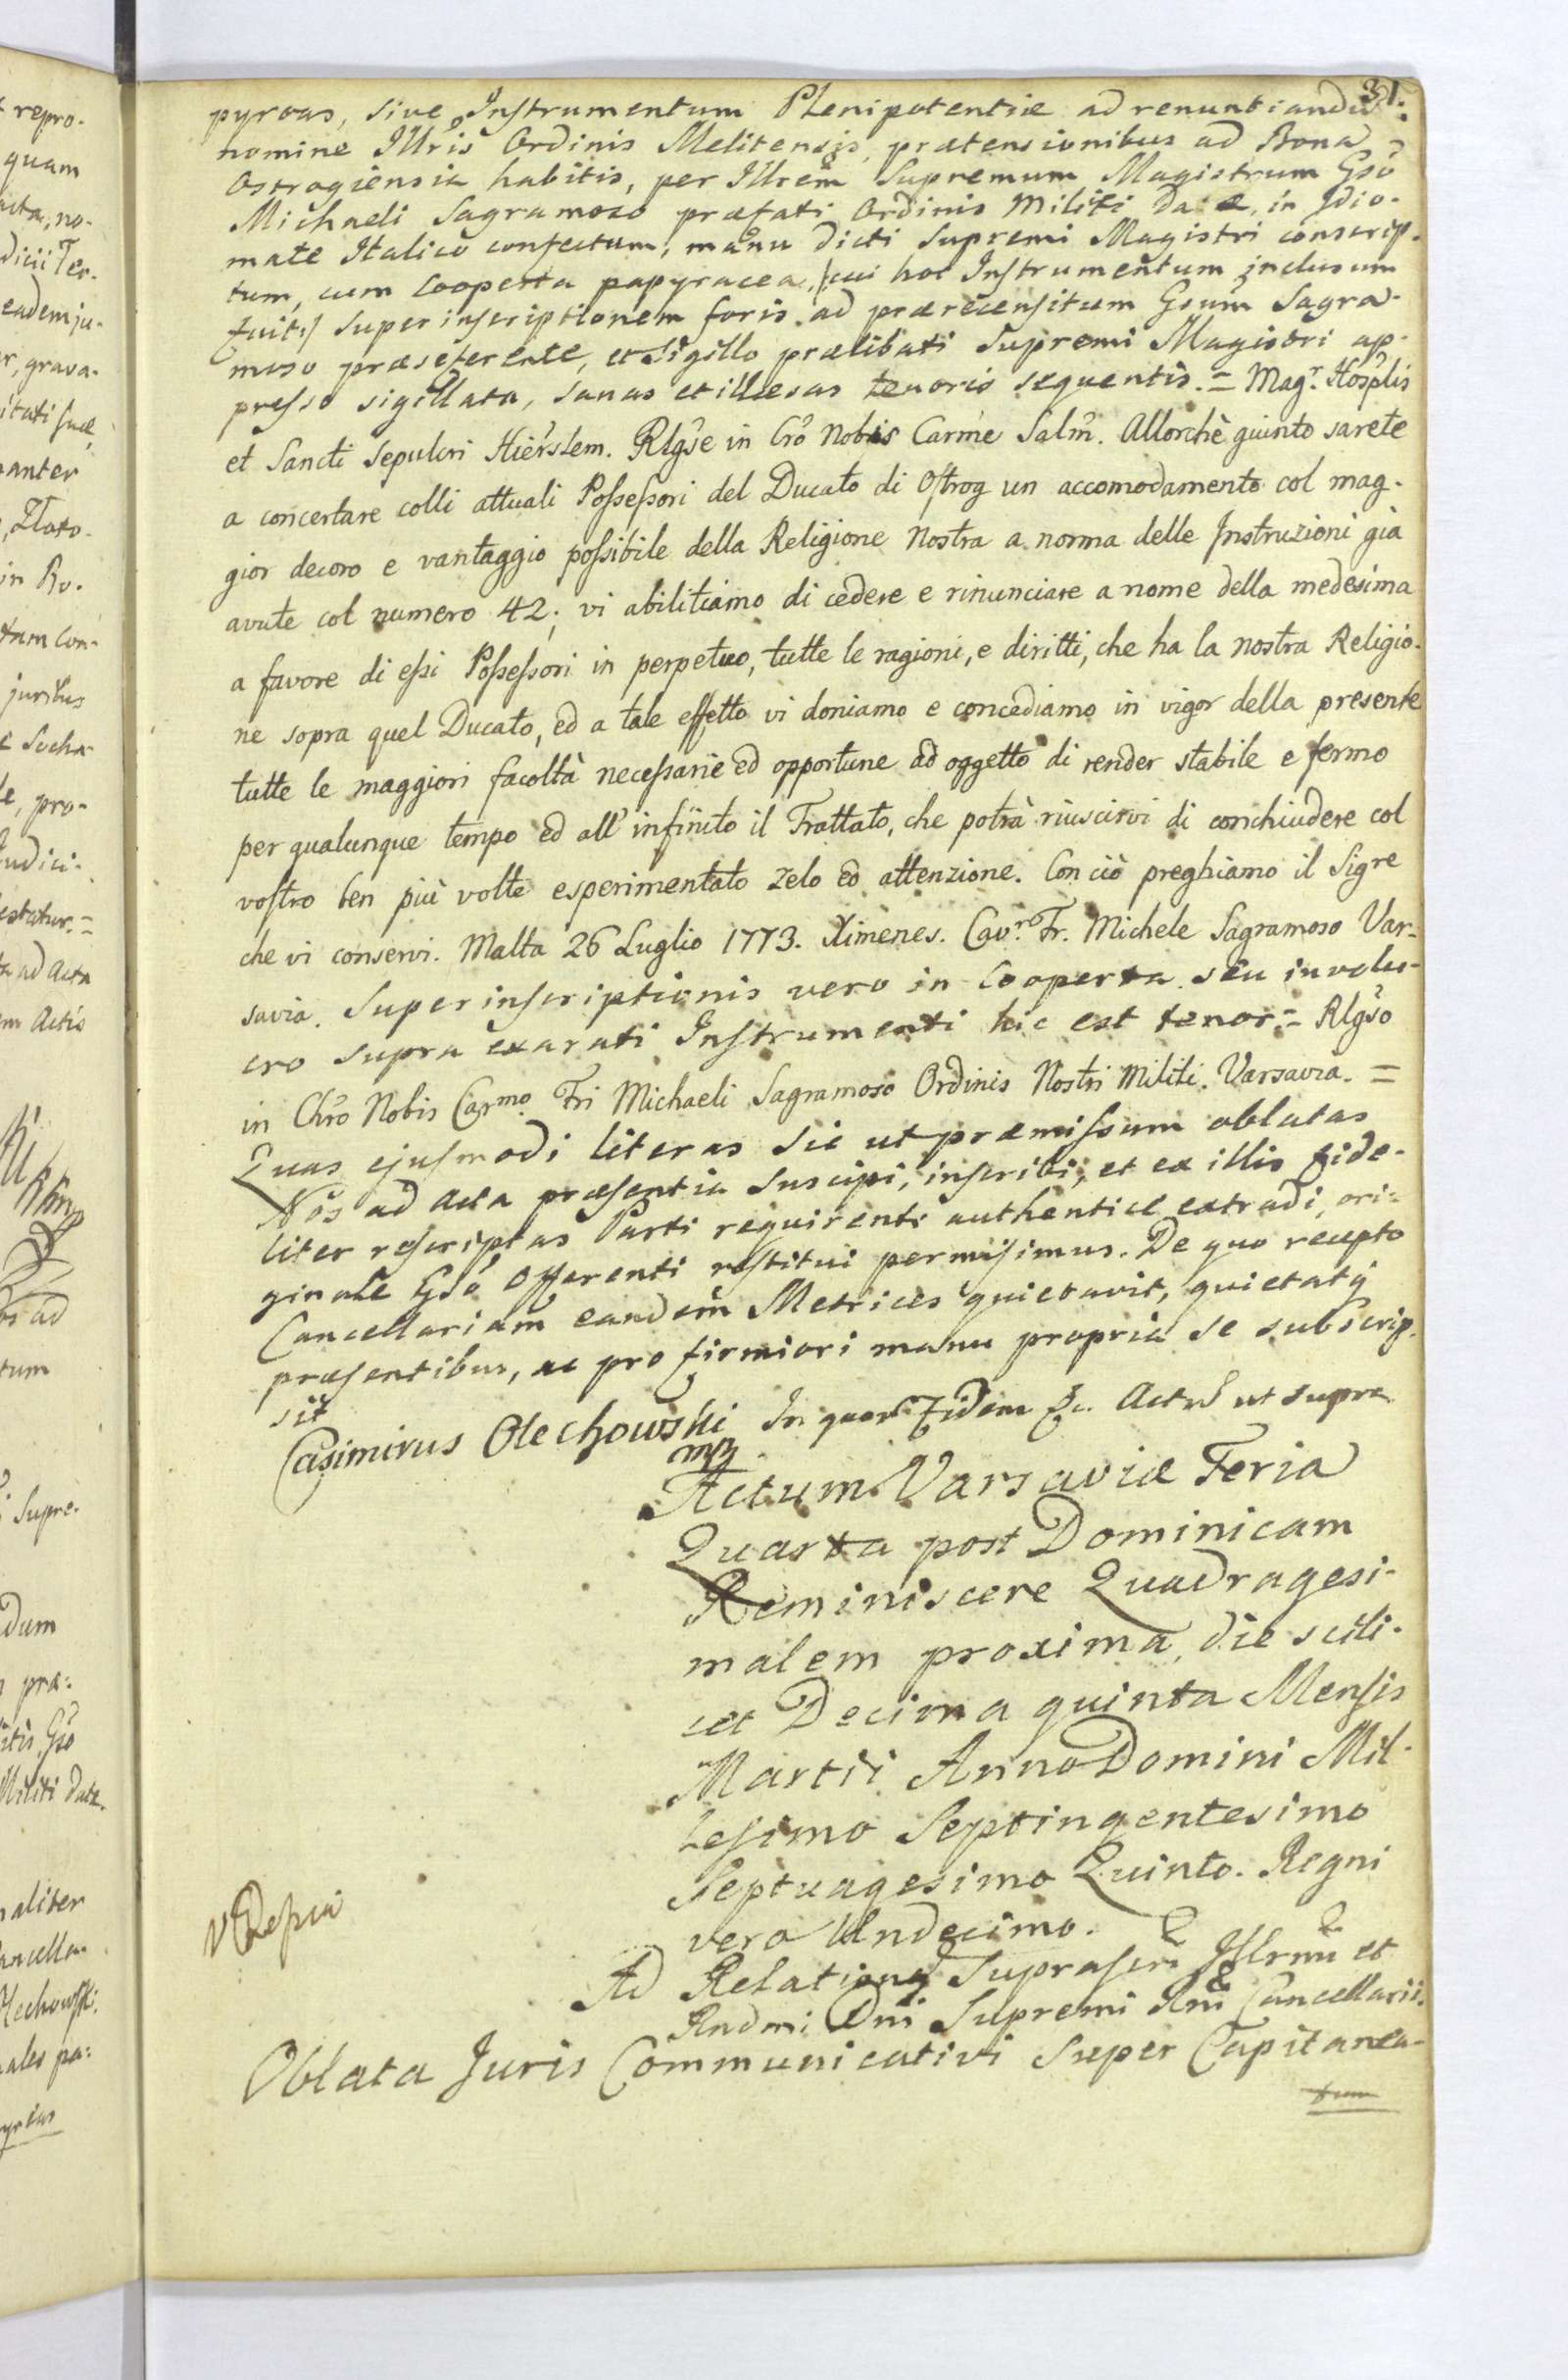 31.
pyreas, sive Instrumentum Plenipotentiæ ad renuntiandũ
nomine Illris Ordinis Melitensis, prætensionibus ad Bona
Ostrogiensia habitis, per Illrem Supremum Magistrum Gso
Michaeli Sagramoso præfati Ordinis Militi datæ, in Idio-
mate Italico confectum, manu dicti Supremi Magistri conscrip-
tum, cum Cooperta papyracea, /:cui hoc Instrumentum inclusum
fuit:/ superinscriptionem foris ad prærecensitum Gsum Sagra-
moso præseferente, et Sigillo prælibati Supremi Magistri ap-
presso sigillata, sanas et illæsas tenoris sequentis. = Magr. Hosplis
et Sancti Sepulcri Hierslem. Rlgse in Cro Nobis Carme Salm. Allorchè giunto sarete
a concertare colli attuali Possessori del Ducato di Ostrog un accomodamento col mag-
gior decoro e vantaggio possibile della Religione Nostra a norma delle Instruzioni già
avute col numero 42; vi abilitiamo di cedere e rinunciare a nome della medesima
a favore di essi Possessori in perpetuo, tutte le ragioni, e diritti, che ha la nostra Religio-
ne sopra quel Ducato, ed a tale effetto vi doniamo e concediamo in vigor della presente
tutte le maggiori facoltà necessarie ed opportune ad oggetto di render stabile e fermo
per qualunque tempo ed all' infinito il Trattato, che potrà riuscirvi di conchiudere col
vostro ben più volte esperimentato zelo ed attenzione. Con ciò preghiamo il Sigre
che vi conservi. Malta 26 Luglio 1773. Ximenes. Cavr. Fr. Michele Sagramoso Var-
savia. Superinscriptionis vero in Cooperta seu involu-
cro supra exarati Instrumenti hic est tenor = Rlgso
in Chro Nobis Carmo. Fri Michaeli Sagramoso Ordinis Nostri Militi. Varsavia. =
Quas ejusmodi literas sic ut præmissum oblatas
Nos ad Acta præsentia suscipi, inscribi, et ex illis fide-
liter rescriptas Parti requirenti authentice extradi, ori-
ginale Gso Offerenti restitui permisimus. De quo recepto
Cancellariam eandem Metrices quietavit, quietatq
præsentibus, ac pro firmiori manu propria se subscrip-
sit
Casimirus Olechowski In quor Fidem &c. Actũ ut supra
mp
Actum Varsaviæ Feria
Quarta post Dominicam
Reminiscere Quadragesi-
malem proxima, die scili-
cet Decima quinta Mensis
Martii Anno Domini Mil-
lesimo Septingentesimo
Septuagesimo Quinto. Regni
vero Undecimo.
Ad Relationẽ Suprascri Illrmi et
Rndmi Dni Supremi Rni Cancellarii.
Oblata Juris Communicativi super Capitanea-
tum